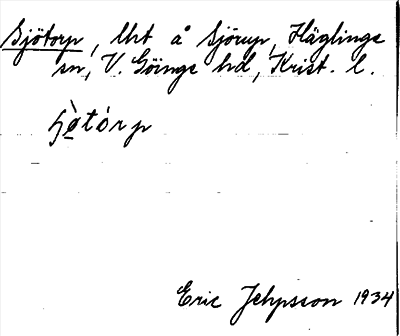 Sjötorp, lht å Sjörup, Häglinge
sn, V. Göinge hd, Krist. l.
ɧø̀tór̀p
Eric Jehpsson 1934